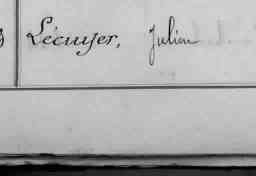 Lécuyer, Julien